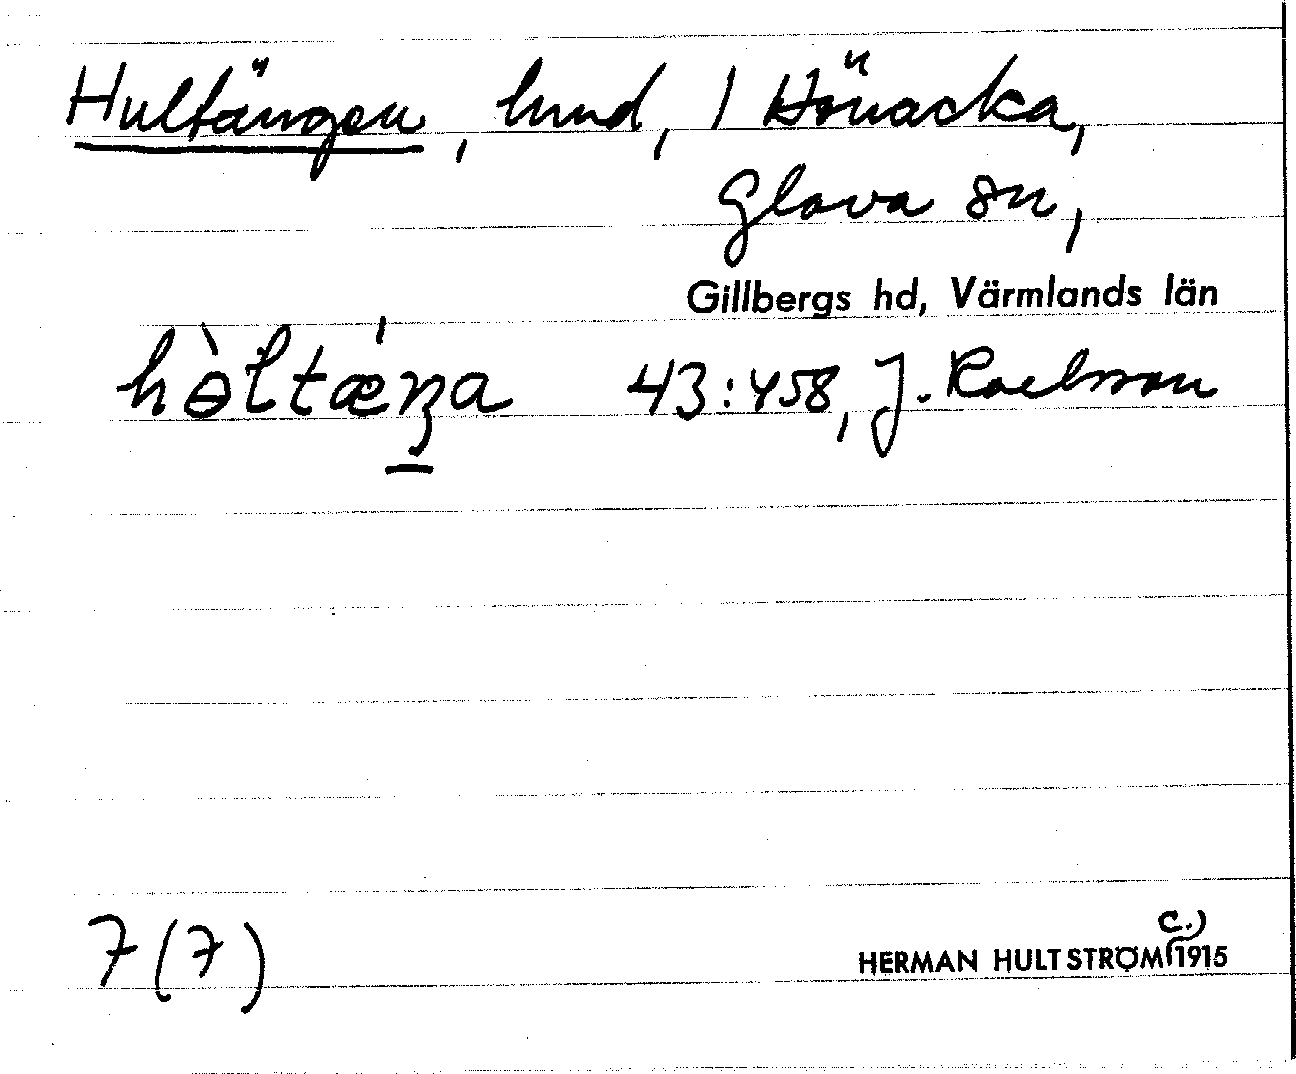 Hultängen, lund, 1 Hönacka,
Glava sn,
Gillbergs hd, Värmlands län
hɵ̀ltǽŋa 43:458, J. Roelsson
7 (7)
HERMAN HULTSTRÖM (c.) 1915